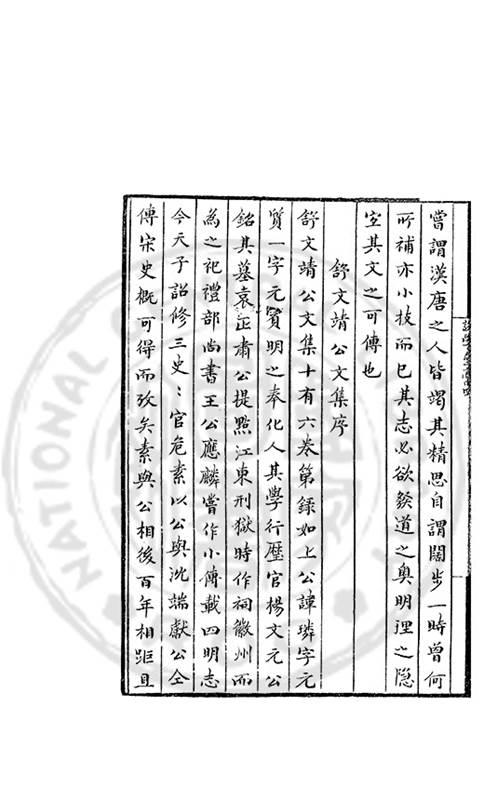 嘗謂漢唐之人皆竭其精思自謂闊步一時曾何
所補亦小技而已其志必欲發道之奥明理之隱
宜其文之可傳也
舒文靖公文集序
舒文靖公文集十有六卷第録如上公諱璘字元
質一字元賓明之奉化人其學行歷官楊文元公
銘其墓袁正肅公提㸃江東刑獄時作祠徽州而
為之祀禮部尚書王公應麟嘗作小傳載四明志
今天子詔修三史〻官危素以公與沈端獻公仝
傳宋史概可得而攷矣素與公相後百年相距且
NATIONAL